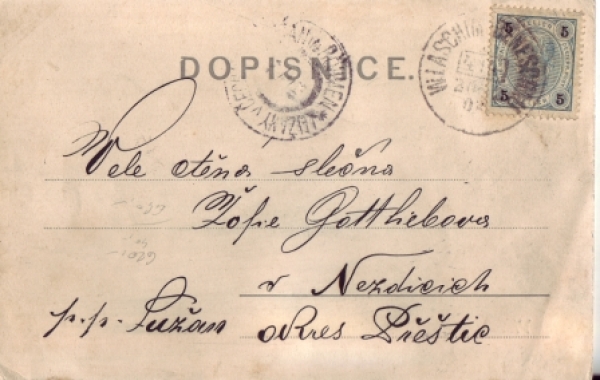 DOPISNICE.
WLASCHIM
5 5
5 5
Vele ctěna slečna
Žofie Gottliebova
v Nezdicich
p. p. Lužan okres Přeštic